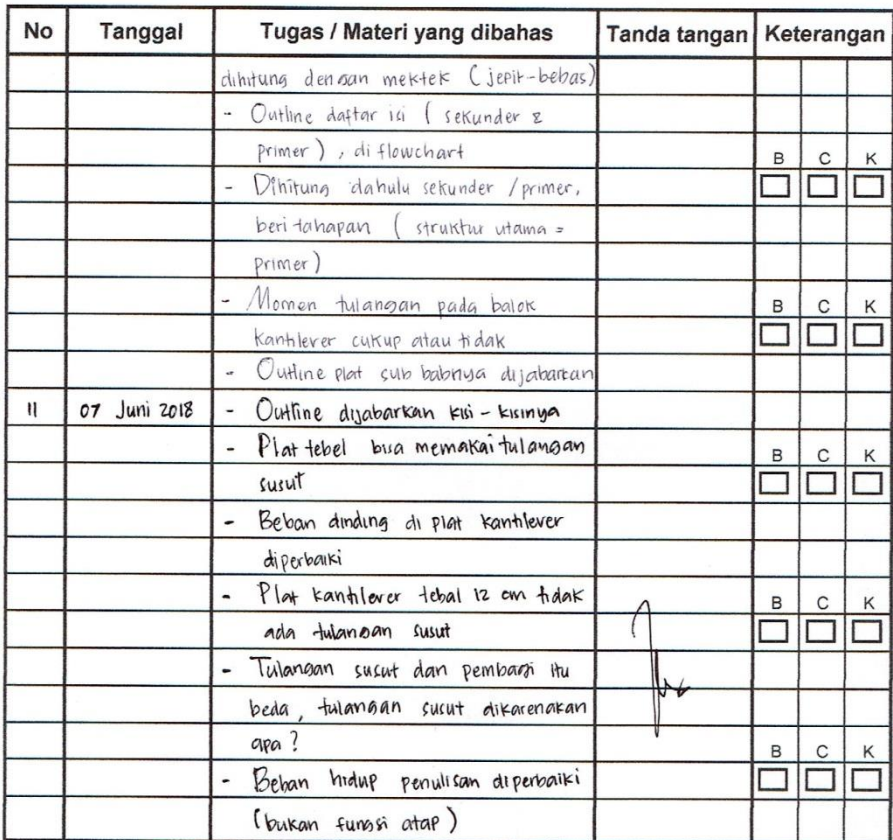 No Tanggal Tugas / Materi yang dibahas Tanda tangan Keterangan
dihitung dengan mektek (jepit-bebas)
- Outline daftar isi ( sekunder &
primer ) , di flowchart
B C K
- Dihitung dahulu sekunder / primer,
beri tahapan ( struktur utama =
primer )
- Momen tulangan pada balok
B C K
kantilever cukup atau tidak
- Outline plat sub babnya dijabarkan
11 07 Juni 2018 - Outline dijabarkan kisi - kisinya
- Plat tebel bisa memakai tulangan
B C K
susut
- Beban dinding di plat kantilever
diperbaiki
- Plat kantilever tebal 12 cm tidak
B C K
ada tulangan susut
- Tulangan susut dan pembagi itu
beda , tulangan susut dikarenakan
apa ?
B C K
- Beban hidup penulisan diperbaiki
(bukan fungsi atap )